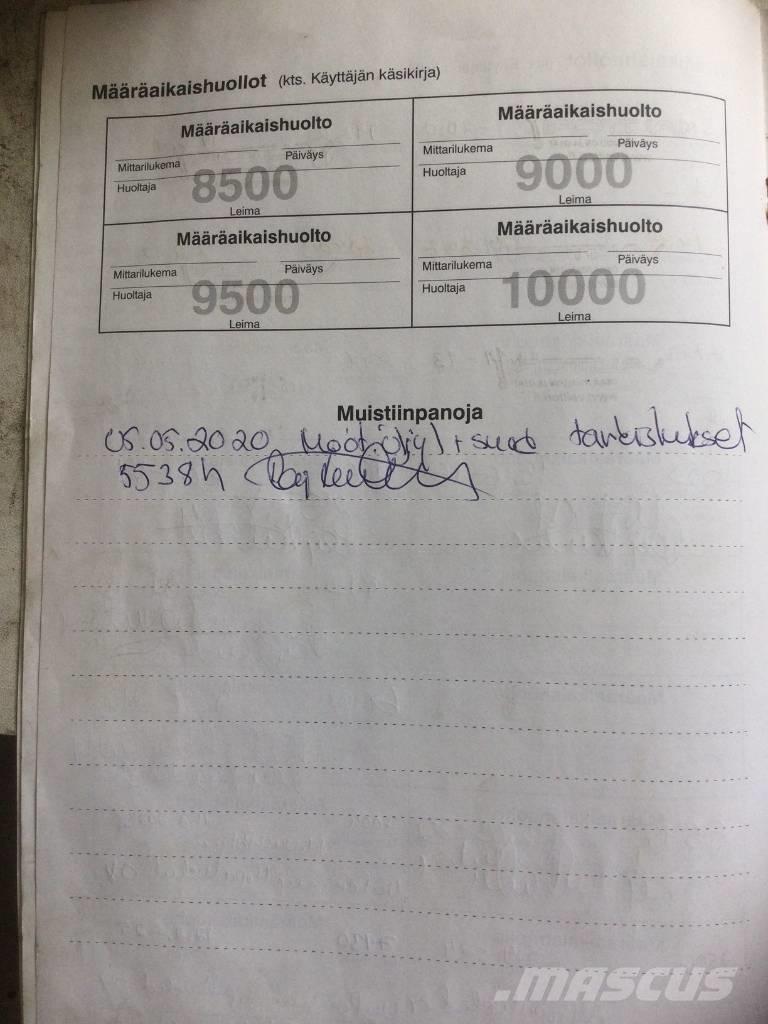 Määräaikaishuollot (kts. Käyttäjän käsikirja)
Määräaikaishuolto
Mittarilukema Päiväys
Huoltaja 8500
Leima
Määräaikaishuolto
Mittarilukema Päiväys
Huoltaja 9000
Leima
Määräaikaishuolto
Mittarilukema Päiväys
Huoltaja 9500
Leima
Määräaikaishuolto
Mittarilukema Päiväys
Huoltaja 10000
Leima
Muistiinpanoja
05.05.2020 + suod tarkistukset
5538h
.mascus